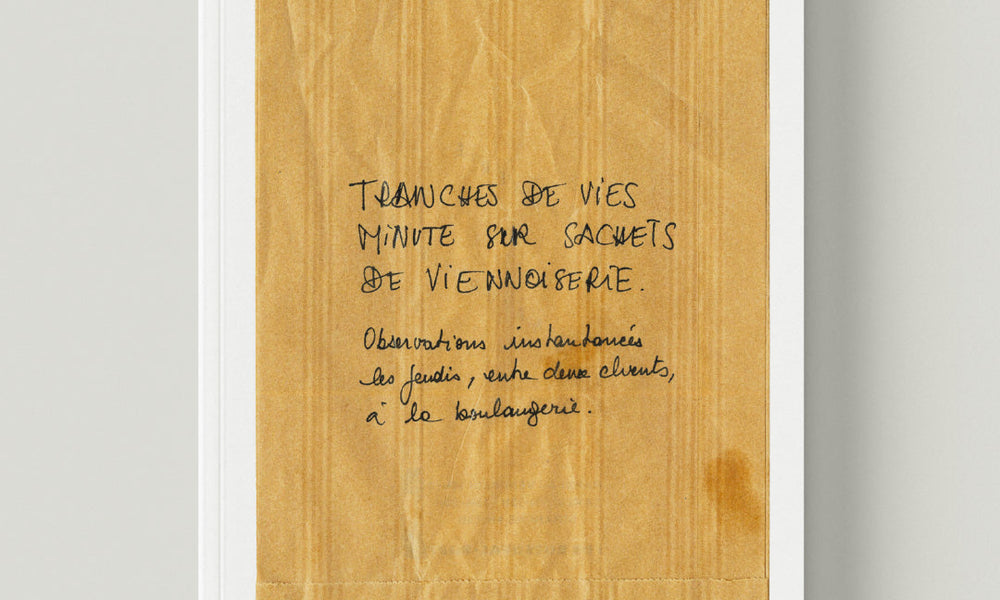 TRANCHES DE VIES
MINUTE SUR SACHETS
DE VIENNOISERIE.
Observations instantanées
les jeudis, entre deux clients,
à la boulangerie.